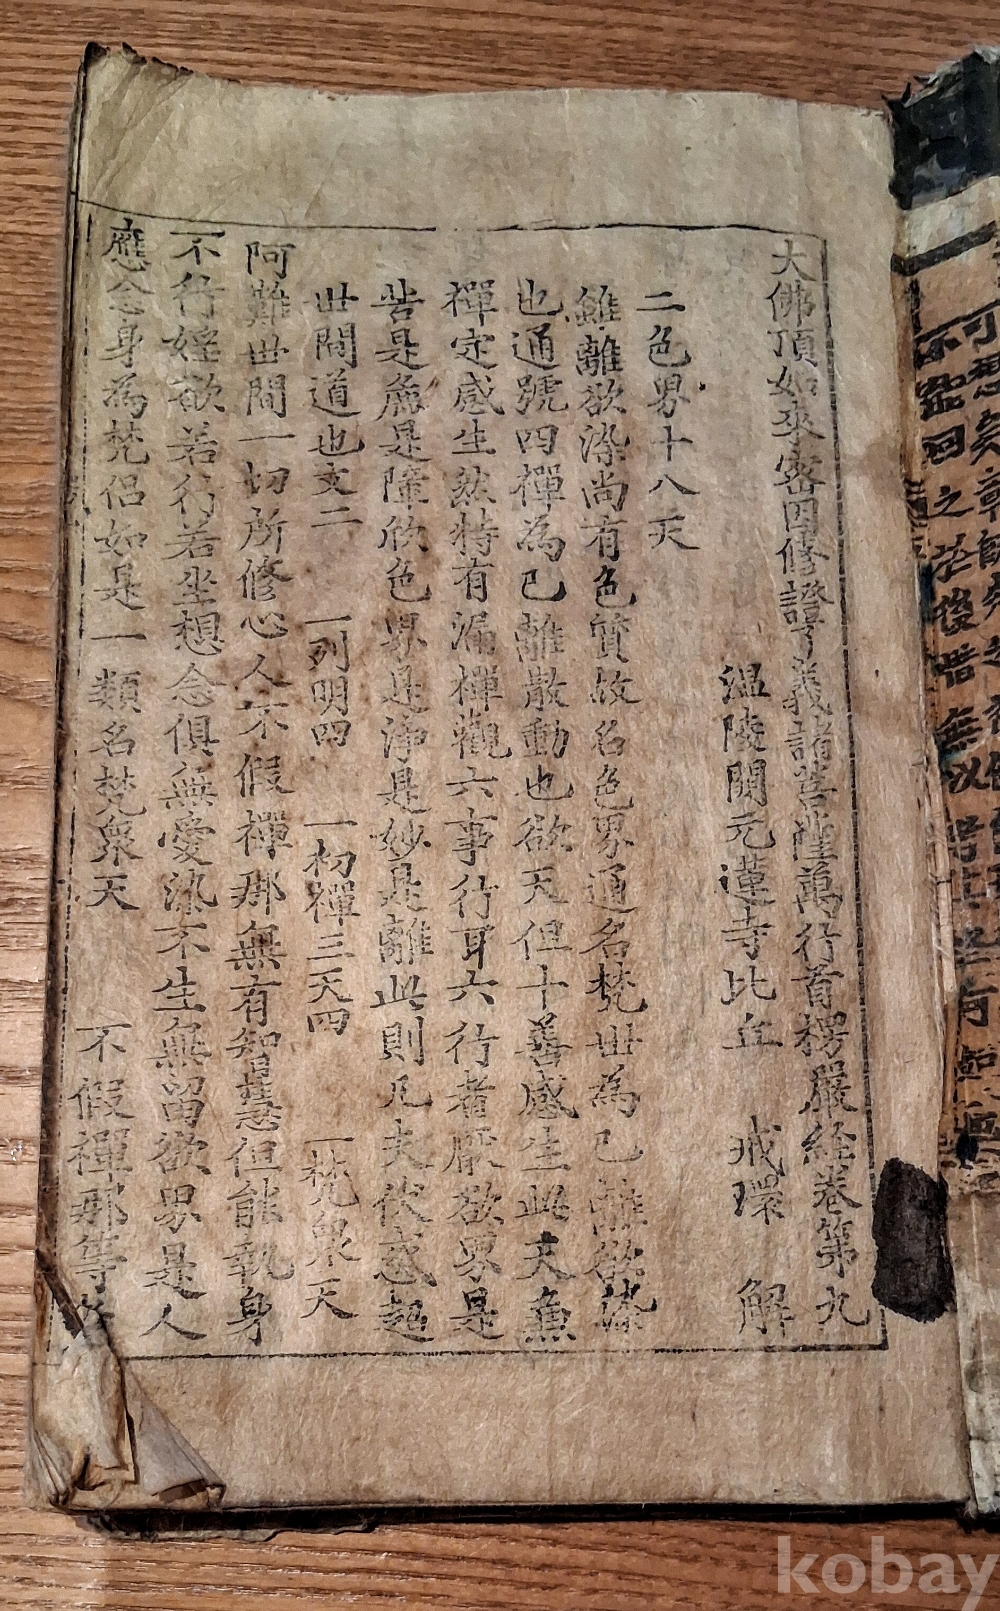 大佛頂如來密因修證了義諸菩薩萬行首楞嚴經卷第九
温陵開元蓮寺比丘 戒環 解
二色界十八天
雖離欲染尚有色質故名色界通名梵世為已離欲染
也通號四禪為已離散動也欲天但十善感生此天兼
禪定感生然特有漏禪觀六事行耳六行者厭欲界是
苦是麁是障欣色界是淨是妙是離此則凡夫伏惑超
世間道也文二 一列明四 一初禪三天四 一梵衆天
阿難世間一切所修心人不假禪那無有智慧但能執身
不行婬欲若行若坐想念俱無愛染不生無留欲界是人
應念身為梵侶如是一類名梵衆天 不假禪那等
kobay